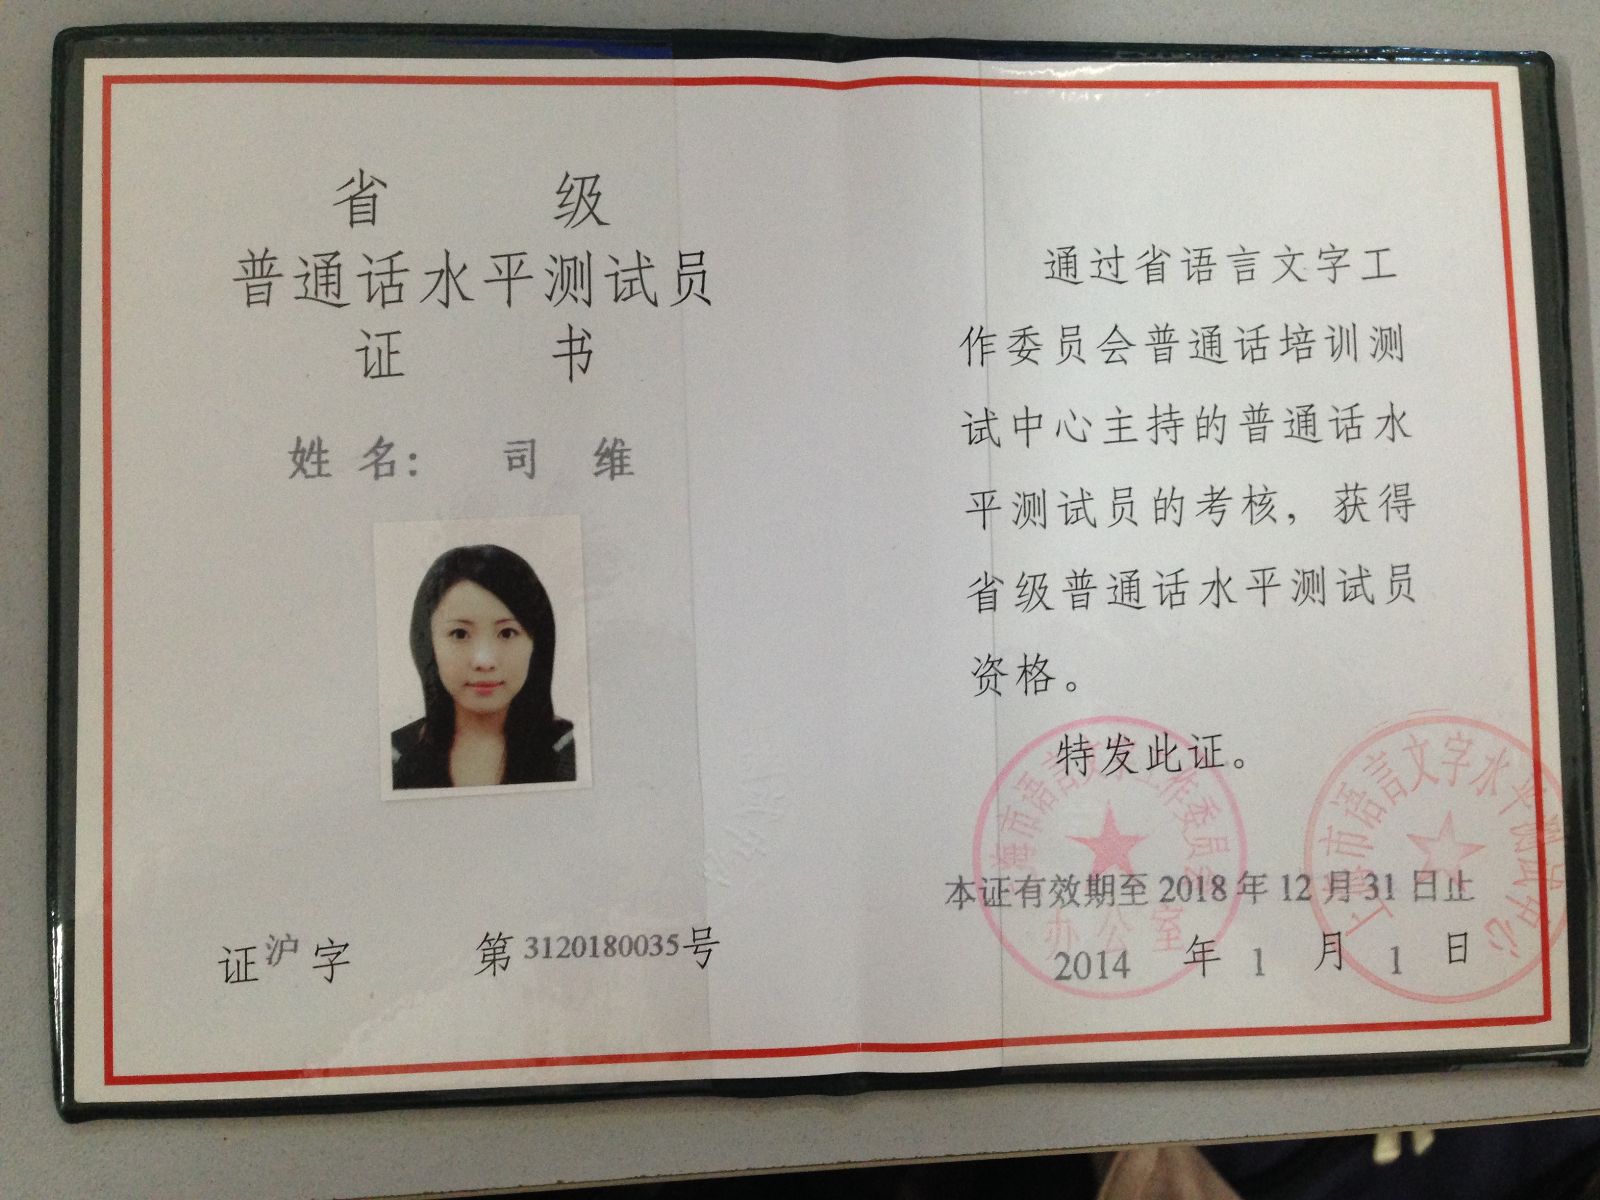 省 级
普通话水平测试员
证 书
姓 名： 司 维
证沪字 第3120180035号
通过省语言文字工
作委员会普通话培训测
试中心主持的普通话水
平测试员的考核，获得
省级普通话水平测试员
资格。
特发此证。
本证有效期至2018年12月31日止
2014 年 1 月 1 日
海市语言文字工作委员会
办公室
上海市语言文字水平测试中心